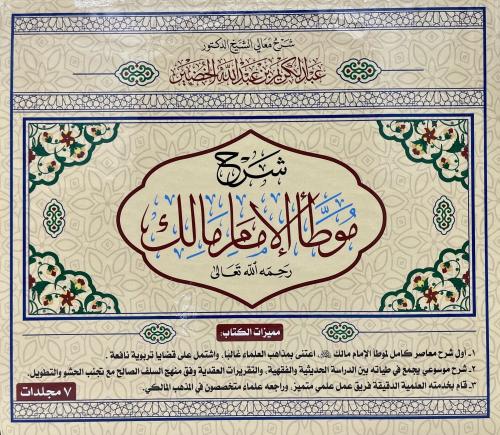 شرح معالي الشيخ الدكتور
عبد الكريم بن عبد الله الخضير
شرح
موطأ الإمام مالك
رحمه الله تعالى
مميزات الكتاب:
١- أول شرح معاصر كامل لموطأ الإمام مالك ﷺ، اعتنى بمذاهب العلماء غالبا. واشتمل على قضايا تربوية نافعة.
٢- شرح موسوعي يجمع في طياته بين الدراسة الحديثية والفقهية، والتقريرات العقدية وفق منهج السلف الصالح مع تجنب الحشو والتطويل.
٣- قام بخدمته العلمية الدقيقة فريق عمل علمي متميز. وراجعه علماء متخصصون في المذهب المالكي.
٧ مجلدات